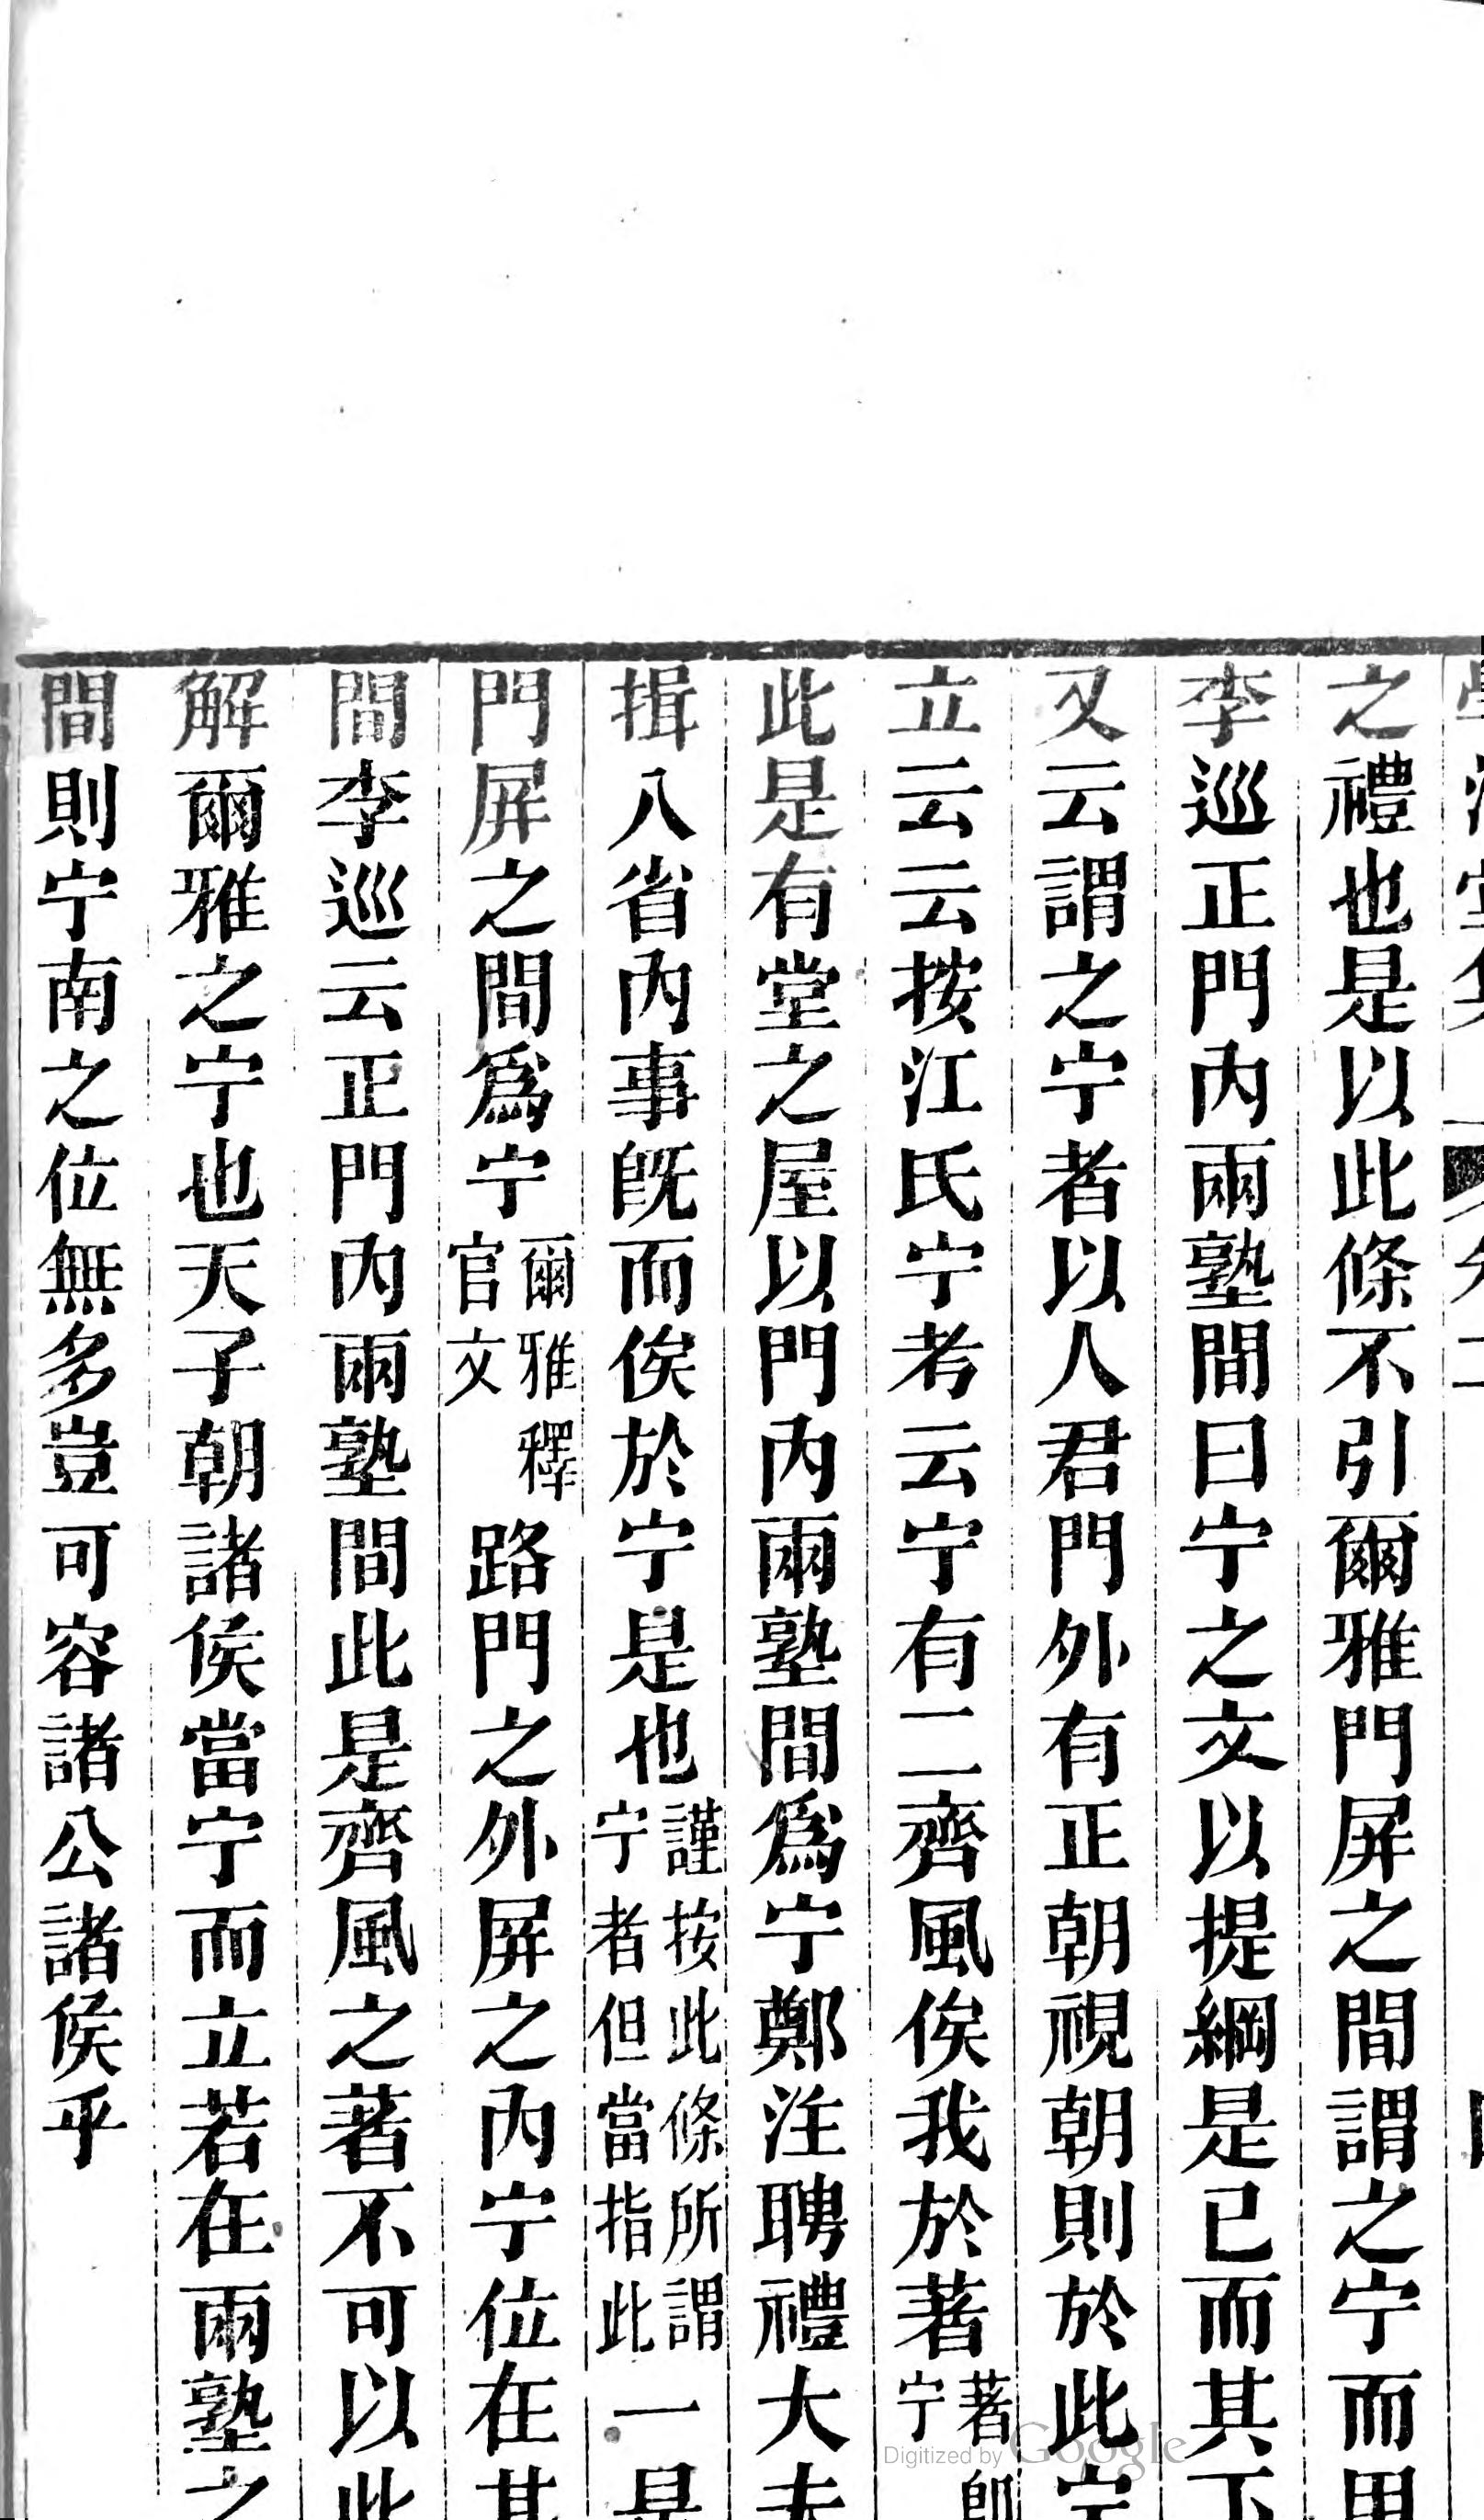 之禮也是以此條不引爾雅門屏之間謂之宁而用
李巡正門內兩塾間曰宁之文以提綱是已而其下
又云謂之宁者以人君門外有正朝視朝則於此宁
立云云按江氏宁考云宁有二齊風俟我於著著即宁
此是有堂之屋以門內兩塾間為宁鄭注聘禮大夫
揖入省內事既而俟於宁是也謹按此條所謂宁者但當指此一是
門屏之間為宁爾雅釋官文路門之外屏之內宁位在其
間李巡云正門內兩塾間此是齊風之著不可以此
解爾雅之宁也天子朝諸侯當宁而立若在兩塾之
間則宁南之位無多豈可容諸公諸侯乎
Digitized by Google